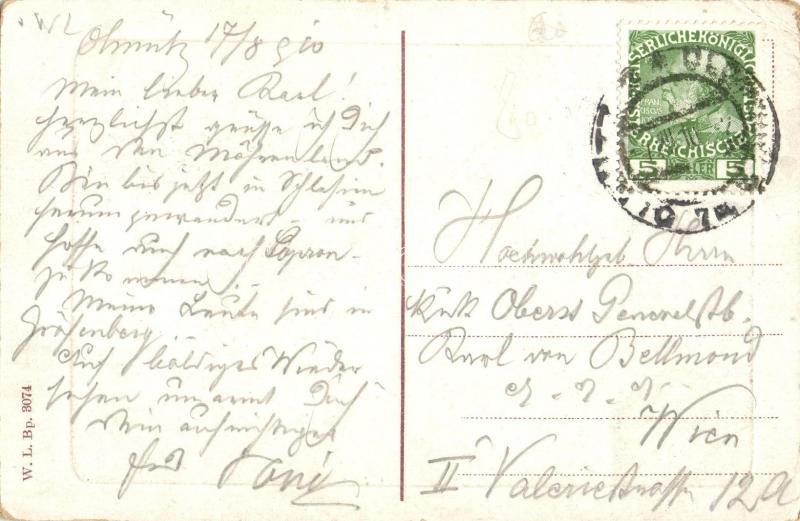 WL
Olmütz 17/8 910
Mein lieber Karl!
Herzlichst grüsse ich Dich
aus dem Mährenland.
Bin bis jetzt in Schlesien
herumgewandert und
hoffe auch nach Sopron
zu kommen.
Meine Leute sind in
Gräfenberg.
Auf baldiges Wieder
sehen umarmt Dich
Dein aufrichtiger
Toni
W. L. Bp. 3074
KAISERLICHEKÖNIGLICHE
ÖSTERREICHISCHE
5 5
Hochwohlgeb Herrn
k.u.k. Oberst Generalstb.
Karl von Bellmond
Wien
II Valeriestrasse 12A